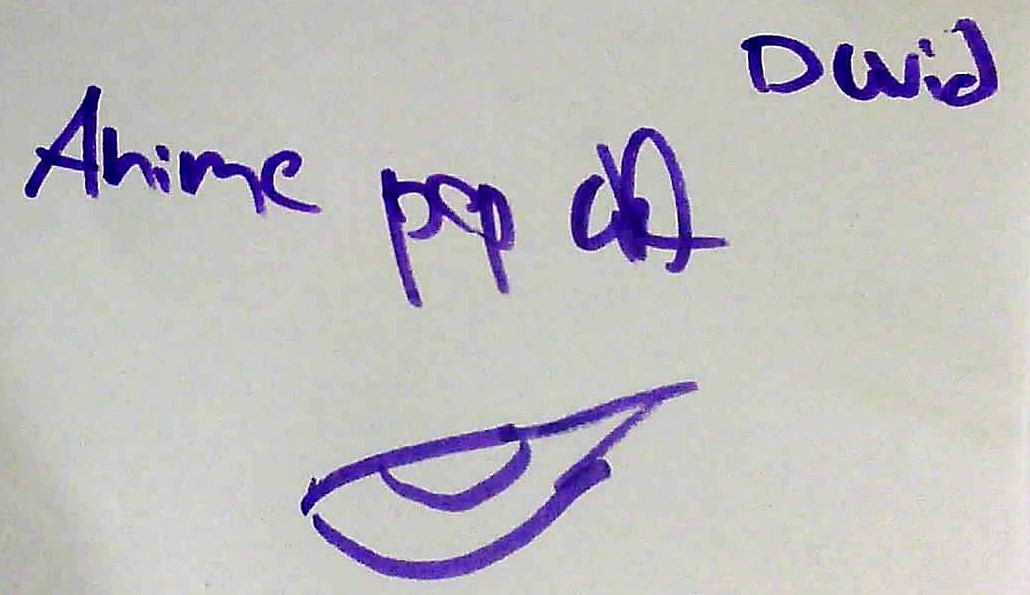 David
Anime pop